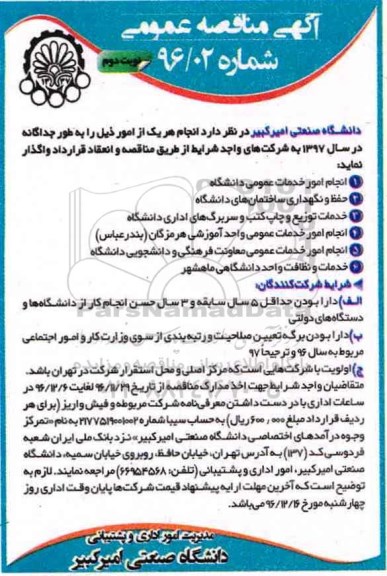 آگهی مناقصه عمومی
شماره ۹۶/۰۲
نوبت دوم
دانشگاه صنعتی امیرکبیر در نظر دارد انجام هر یک از امور ذیل را به طور جداگانه
در سال ۱۳۹۷ به شرکت های واجد شرایط از طریق مناقصه و انعقاد قرارداد واگذار
نماید:
انجام امور خدمات عمومی دانشگاه
حفظ و نگهداری ساختمان های دانشگاه
خدمات توزیع و چاپ کتب و سربرگ های اداری دانشگاه
انجام امور خدمات عمومی واحد آموزشی هرمزگان (بندرعباس)
انجام امور خدمات عمومی معاونت فرهنگی و دانشجویی دانشگاه
خدمات و نظافت واحد دانشگاهی ماهشهر
شرایط شرکت کنندگان:
الف) دارا بودن حداقل ۵ سال سابقه و ۳ سال حسن انجام کار از دانشگاه ها و
دستگاه های دولتی
ب) دارا بودن برگه تعیین صلاحیت و رتبه بندی از سوی وزارت کار و امور اجتماعی
مربوط به سال ۹۶ و ترجیحا ۹۷
ج) اولویت با شرکت هایی است که مرکز اصلی و محل استقرار شرکت در تهران باشد.
متقاضیان واجد شرایط جهت اخذ مدارک مناقصه از تاریخ ۹۶/۱۱/۲۹ لغایت ۹۶/۱۲/۶ در
ساعات اداری با در دست داشتن معرفی نامه شرکت مربوطه و فیش واریز (برای هر
ردیف قرارداد مبلغ ۶۰۰,۰۰۰ ریال) به حساب سیبا شماره به نام «تمرکز
وجوه درآمدهای اختصاصی دانشگاه صنعتی امیرکبیر» نزد بانک ملی ایران شعبه
فردوسی کد (۱۳۷) به آدرس تهران، خیابان حافظ، روبروی خیابان سمیه، دانشگاه
صنعتی امیرکبیر، امور اداری و پشتیبانی (تلفن: ۶۶۹۵۴۵۶۸) مراجعه نمایند. لازم به
توضیح است که آخرین مهلت ارایه پیشنهاد قیمت شرکت ها پایان وقت اداری روز
چهارشنبه مورخ ۹۶/۱۲/۱۶ می باشد.
مدیریت امور اداری و پشتیبانی
دانشگاه صنعتی امیرکبیر